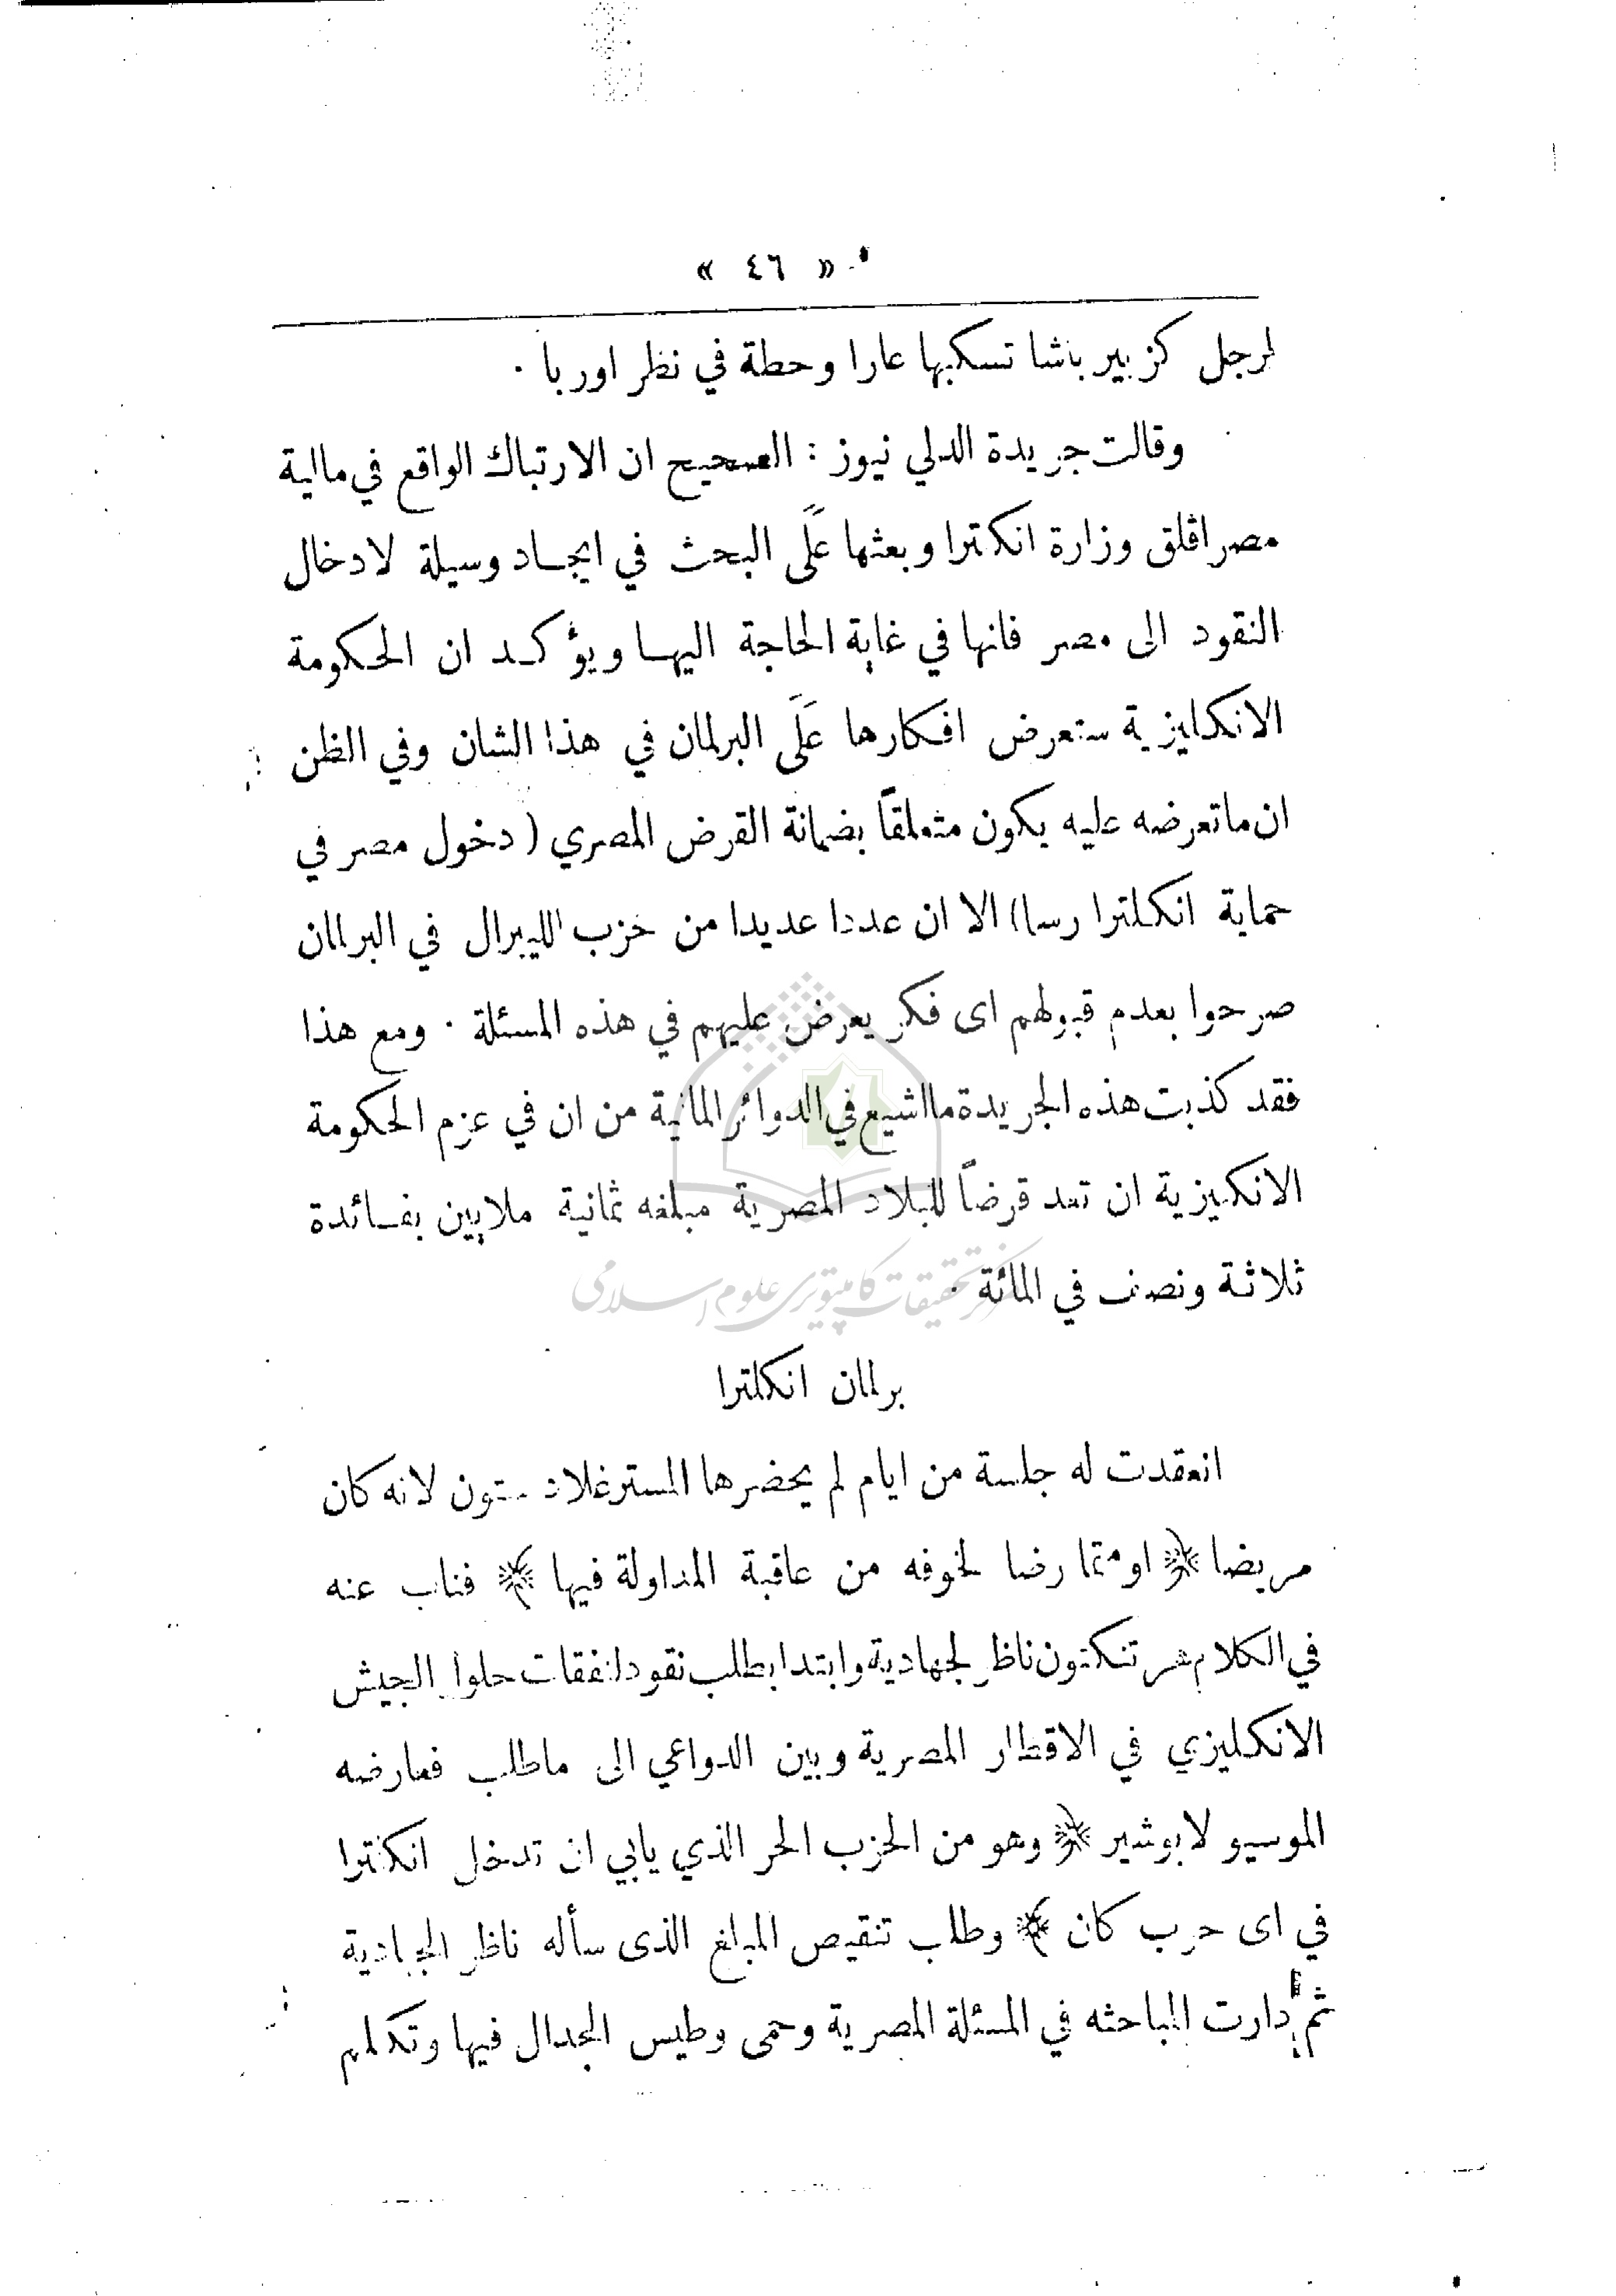 « ٤٦ »
لرجل كزبير باشا تسكبها عارا وحطة في نظر اوربا ٠
وقالت جريدة الدلي نيوز : الصحيح ان الارتباك الواقع في مالية
مصر اقلق وزارة انكلترا وبعثها عَلَى البحث في ايجاد وسيلة لادخال
النقود الى مصر فانها في غاية الحاجة اليها ويؤكد ان الحكومة
الانكليزية ستعرض افكارها عَلَى البرلمان في هذا الشان وفي الظن
ان ماتعرضه عليه يكون متعلقاً بضمانة القرض المصري ( دخول مصر في
حماية انكلترا رسما) الا ان عددا عديدا من حزب الليبرال في البرلمان
صرحوا بعدم قبولهم اى فكر يعرض عليهم في هذه المسئلة ٠ ومع هذا
فقد كذبت هذه الجريدة مااشيع في الدوائر المالية من ان في عزم الحكومة
الانكليزية ان تعد قرضاً للبلاد المصرية مبلغه ثمانية ملايين بفائدة
ثلاثة ونصف في المائة ٠
مركز تحقيقات كامپيوترى علوم اسلامى
برلمان انكلترا
انعقدت له جلسة من ايام لم يحضرها المستر غلادستون لانه كان
مريضا ﴿ او متمارضا لخوفه من عاقبة المداولة فيها ﴾ فناب عنه
في الكلام هرتنكتون ناظر الجهادية وابتدا بطلب نقود لنفقات حلول الجيش
الانكليزي في الاقطار المصرية وبين الدواعي الى ماطلب فعارضه
الموسيو لابوشير ﴿ وهو من الحزب الحر الذي يابي ان تدخل انكلترا
في اى حرب كان ﴾ وطلب تنقيص المبلغ الذى سأله ناظر الجهادية
ثم دارت المباحثه في المسئلة المصرية وحمى وطيس الجدال فيها وتكلم